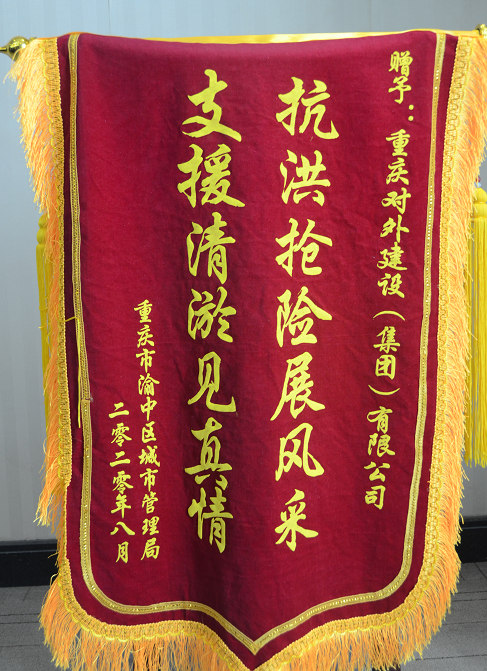 赠予：重庆对外建设（集团）有限公司
抗洪抢险展风采
支援清淤见真情
重庆市渝中区城市管理局
二零二零年八月